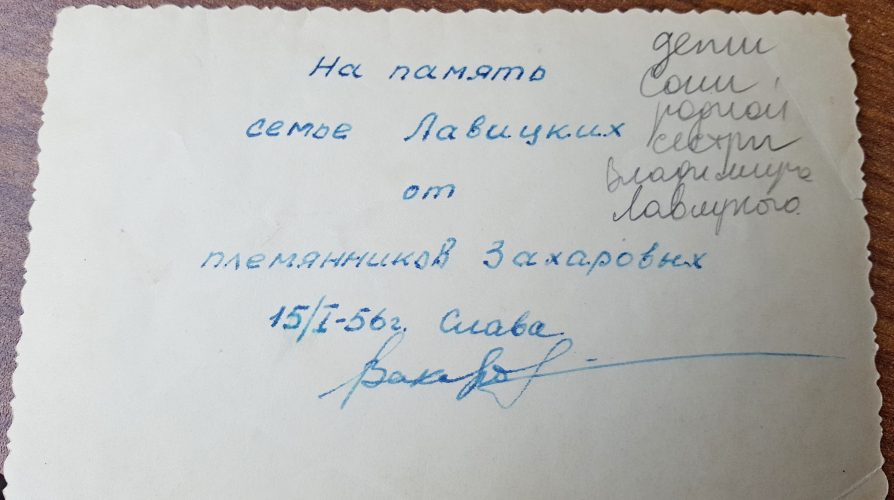 На память
семье Лавицких
от
племянников Захаровых
15/I-56г. Слава
Захаров
дети
Сони,
родной
сестры
Владимира
Лавицкого.